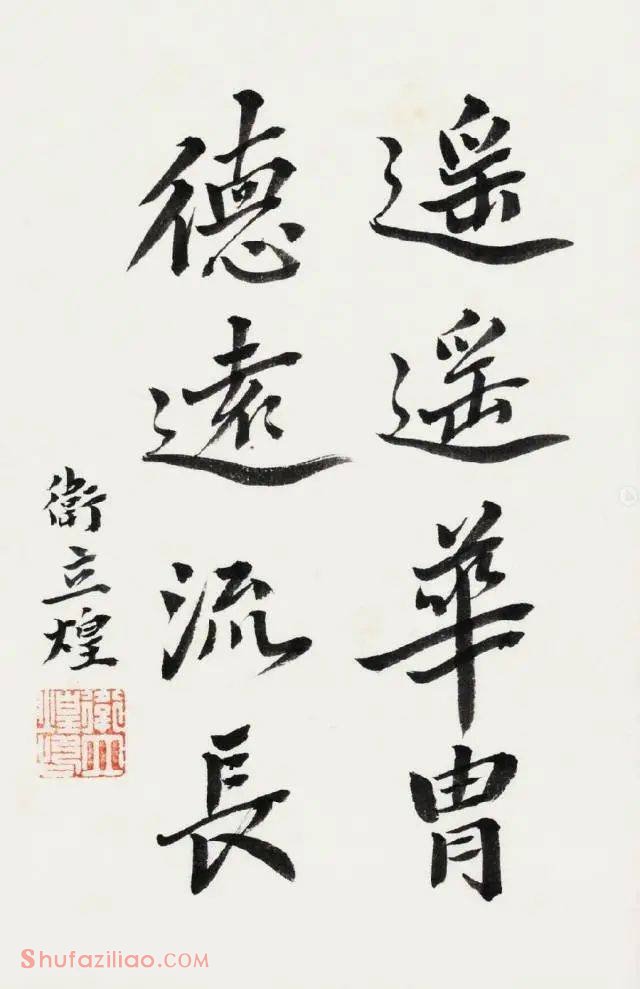 遥遥華胄
德遠流長
衛立煌
Shufaziliao.com